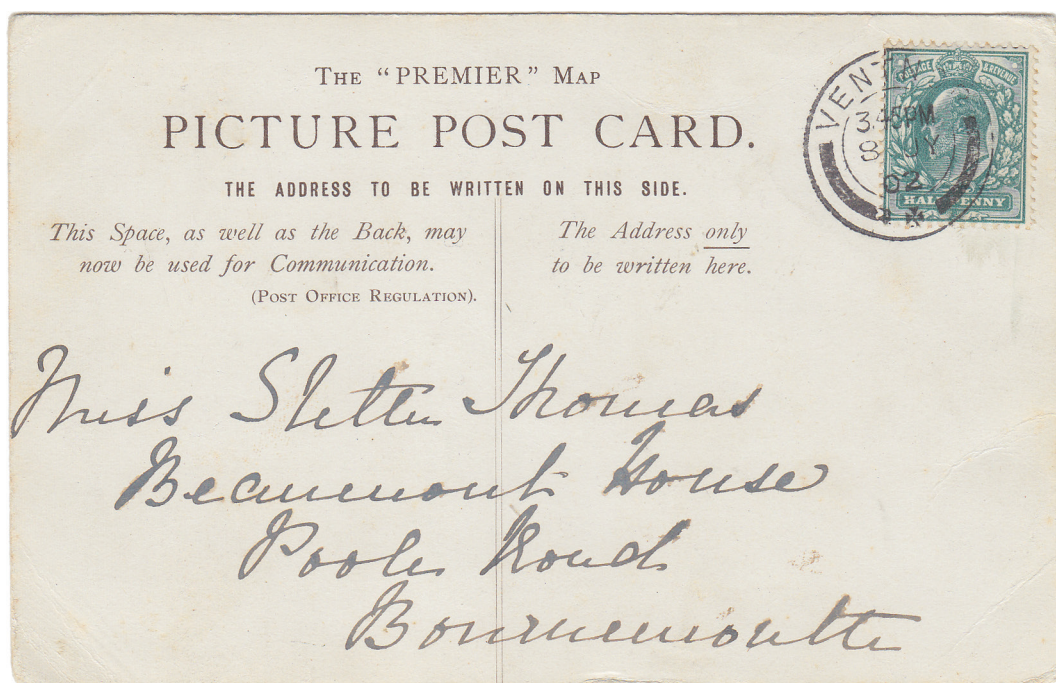 THE "PREMIER" MAP
PICTURE POST CARD.
THE ADDRESS TO BE WRITTEN ON THIS SIDE.
This Space, as well as the Back, may
now be used for Communication.
(POST OFFICE REGULATION).
The Address only
to be written here.
POSTAGE & REVENUE
HALFPENNY
VENT
3.45PM
8 JY
02
Miss Thomas
Beaumont House
Poole Road
Bournemouth